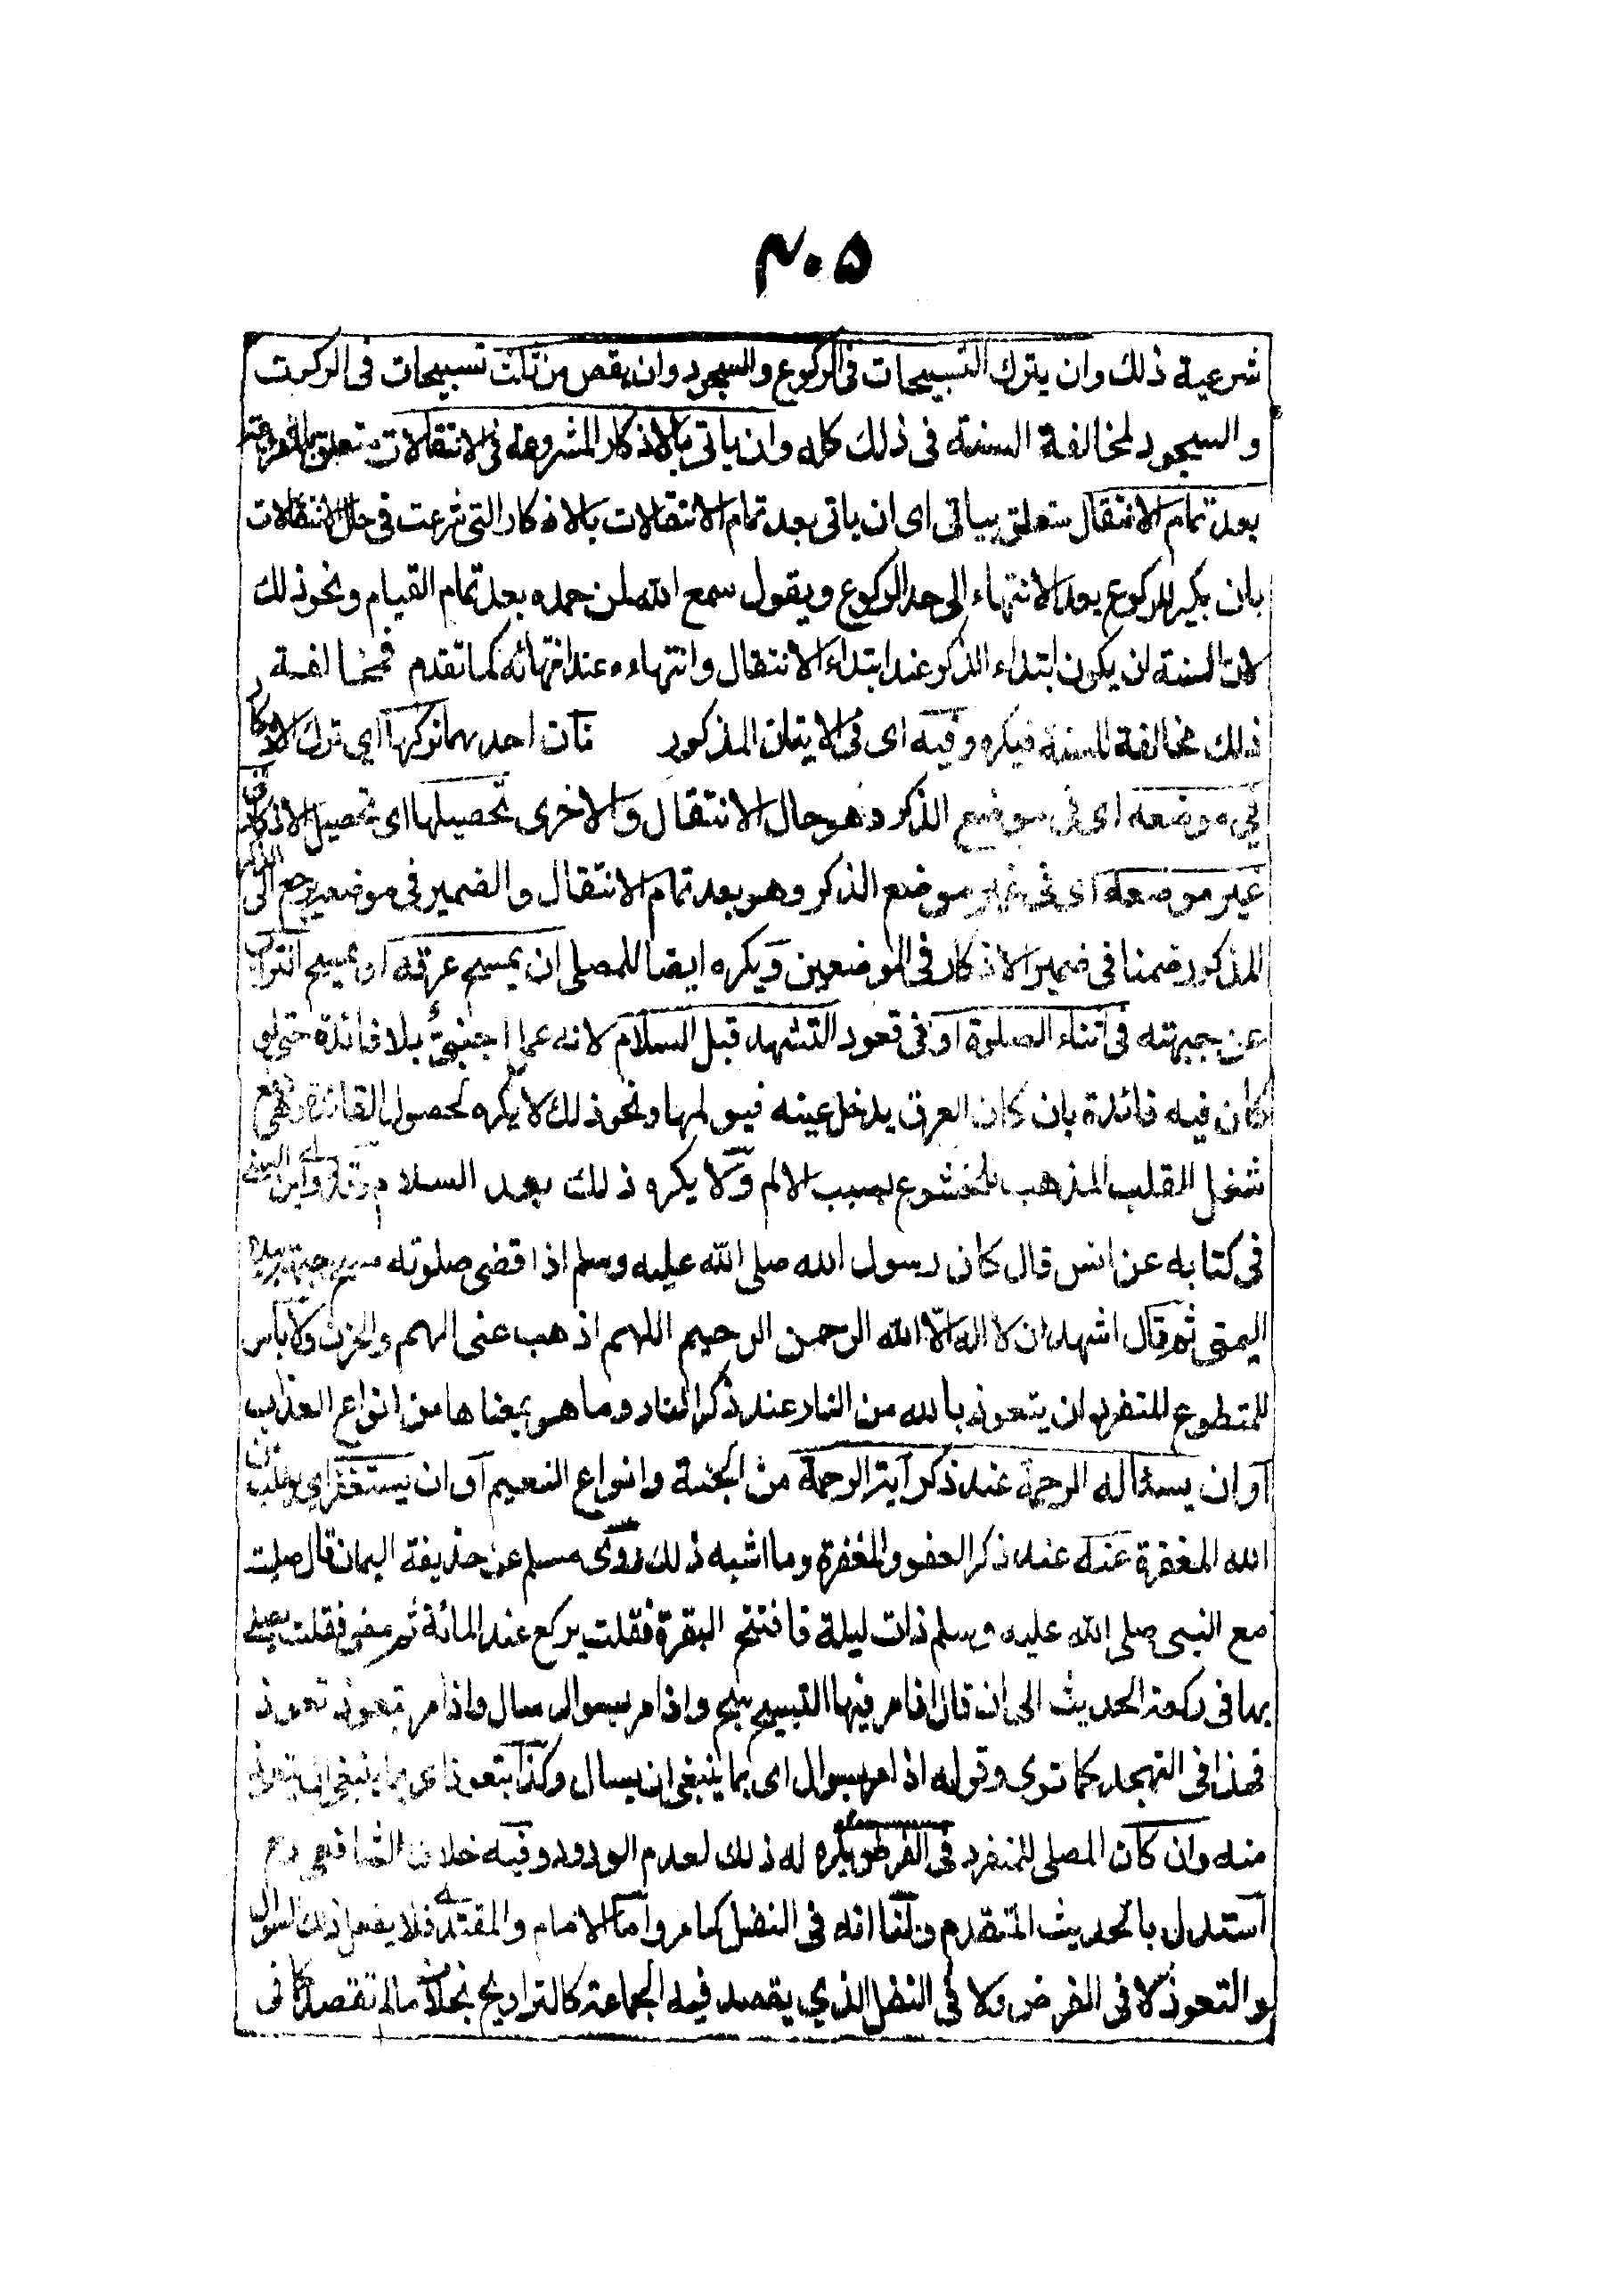 ۳۰۵
شرعية ذلك وان يترك التسبيحات فى الركوع والسجود وان ينقص من ثلث تسبيحات فى الركوت
والسجود لمخالفة السنة فى ذلك كله وان ياتى بالاذكار المشروعة فى الانتقالات متعلق بالمشروعة
بعد تمام الانتقال متعلق بياتى اى ان ياتى بعد تمام الانتقالات بالاذكار التى شرعت فى حال الانتقالات
بان يكبر للركوع بعد الانتهاء الى حد الركوع ويقول سمع الله لمن حمده بعد تمام القيام ونحو ذلك
لان السنة ان يكون ابتداء الذكر عند ابتداء الانتقال وانتهاءه عند انتهائه كما تقدم فمخالفة
ذلك مخالفة للسنة فيكره وفيه اى فى الاتيان المذكور احدهما تركها اى ترك الاذكار
فى موضعه اى فى موضع الذكر وهو حال الانتقال والاخرى تحصيلها اى تحصيل الاذكار فى
غير موضعه اى فى غير موضع الذكر وهو بعد تمام الانتقال والضمير فى موضعه يرجع الى الذكر
المذكور ضمنا فى ضمير الاذكار فى الموضعين ويكره ايضا للمصلى ان يمسح عرقه او يمسح التراب
عن جبهته فى اثناء الصلوة او فى قعود التشهد قبل السلام لانه عمل اجنبىٌّ بلا فائدة حتى لو
كان فيه فائدة بان كان العرق يدخل عينه فيولمها ونحو ذلك لا يكره لحصول الفائدة وهى دفع
شغل القلب المذهب للخشوع بسبب الالم ولا يكره ذلك بعد السلام وابن السنى
فى كتابه عن انس قال كان رسول الله صلى الله عليه وسلم اذا قضى صلوته مسح جبهته بيده
اليمنى ثم قال اشهد ان لا اله الا الله الرحمن الرحيم اللهم اذهب عنى الهم والحزن ولا باس
للمتطوع المنفرد ان يتعوذ بالله من النار عند ذكر النار وما هو بمعناها من انواع العذاب
او ان يسئاله الرحمة عند ذكر آية الرحمة من الجنة وانواع النعيم او ان يستغفر اى يطلب من
الله المغفرة عنه عند ذكر العفو والمغفرة وما اشبه ذلك روى مسلم عن حذيفة اليمان قال صليت
مع النبى صلى الله عليه وسلم ذات ليلة فافتتح البقرة فقلت يركع عند المائة ثم مضى فقلت يصلى
بها فى ركعة الحديث الى ان قال اذا مر فيها التسبيح سبح واذا مر بسوال سال واذا مر بتعوذ تعوذ
فهذا فى التهجد كما ترى وقوله اذا مر بسوال اى بما ينبغى ان يسال وكذا بتعوذ اى بما ينبغى ان يتعوذ
منه وان كان المصلى المنفرد فى الفرض يكره له ذلك لعدم الورود وفيه خلاف الشافعى رح
استدل بالحديث المتقدم ولنا انه فى النفل كما مر واما الامام والمقتدى فلا يفعل ذلك السوال
والتعوذ لا فى الفرض ولا فى النفل الذى يقصد فيه الجماعة كالتراويح بخلاف مالم تقصد كما فى